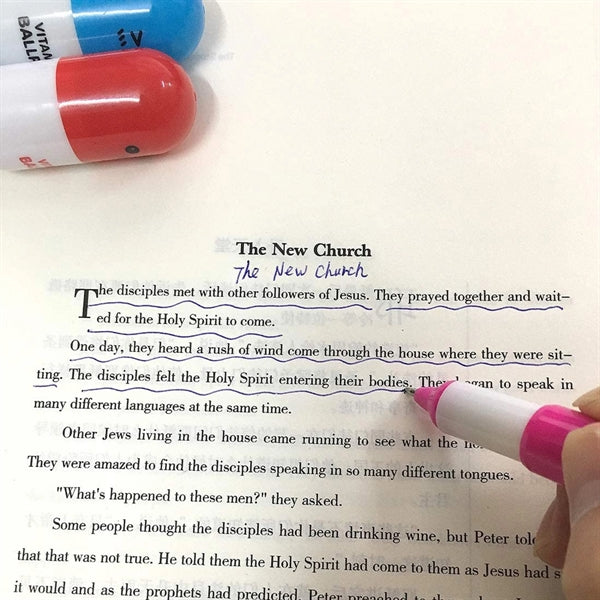 VITAM
BALLP
The New Church
The New Church
The disciples met with other followers of Jesus. They prayed together and wait-
ed for the Holy Spirit to come.
One day, they heard a rush of wind come through the house where they were sit-
ting. The disciples felt the Holy Spirit entering their bodies. They to speak in
many different languages at the same time.
Other Jews living in the house came running to see what the
They were amazed to find the disciples speaking in so many different tongues.
"What's happened to these men?" they asked.
Some people thought the disciples had been drinking wine, but Peter
that that was not true. He told them the Holy Spirit had come to them as Jesus had
it would and as the prophets had predicted. Peter preached to